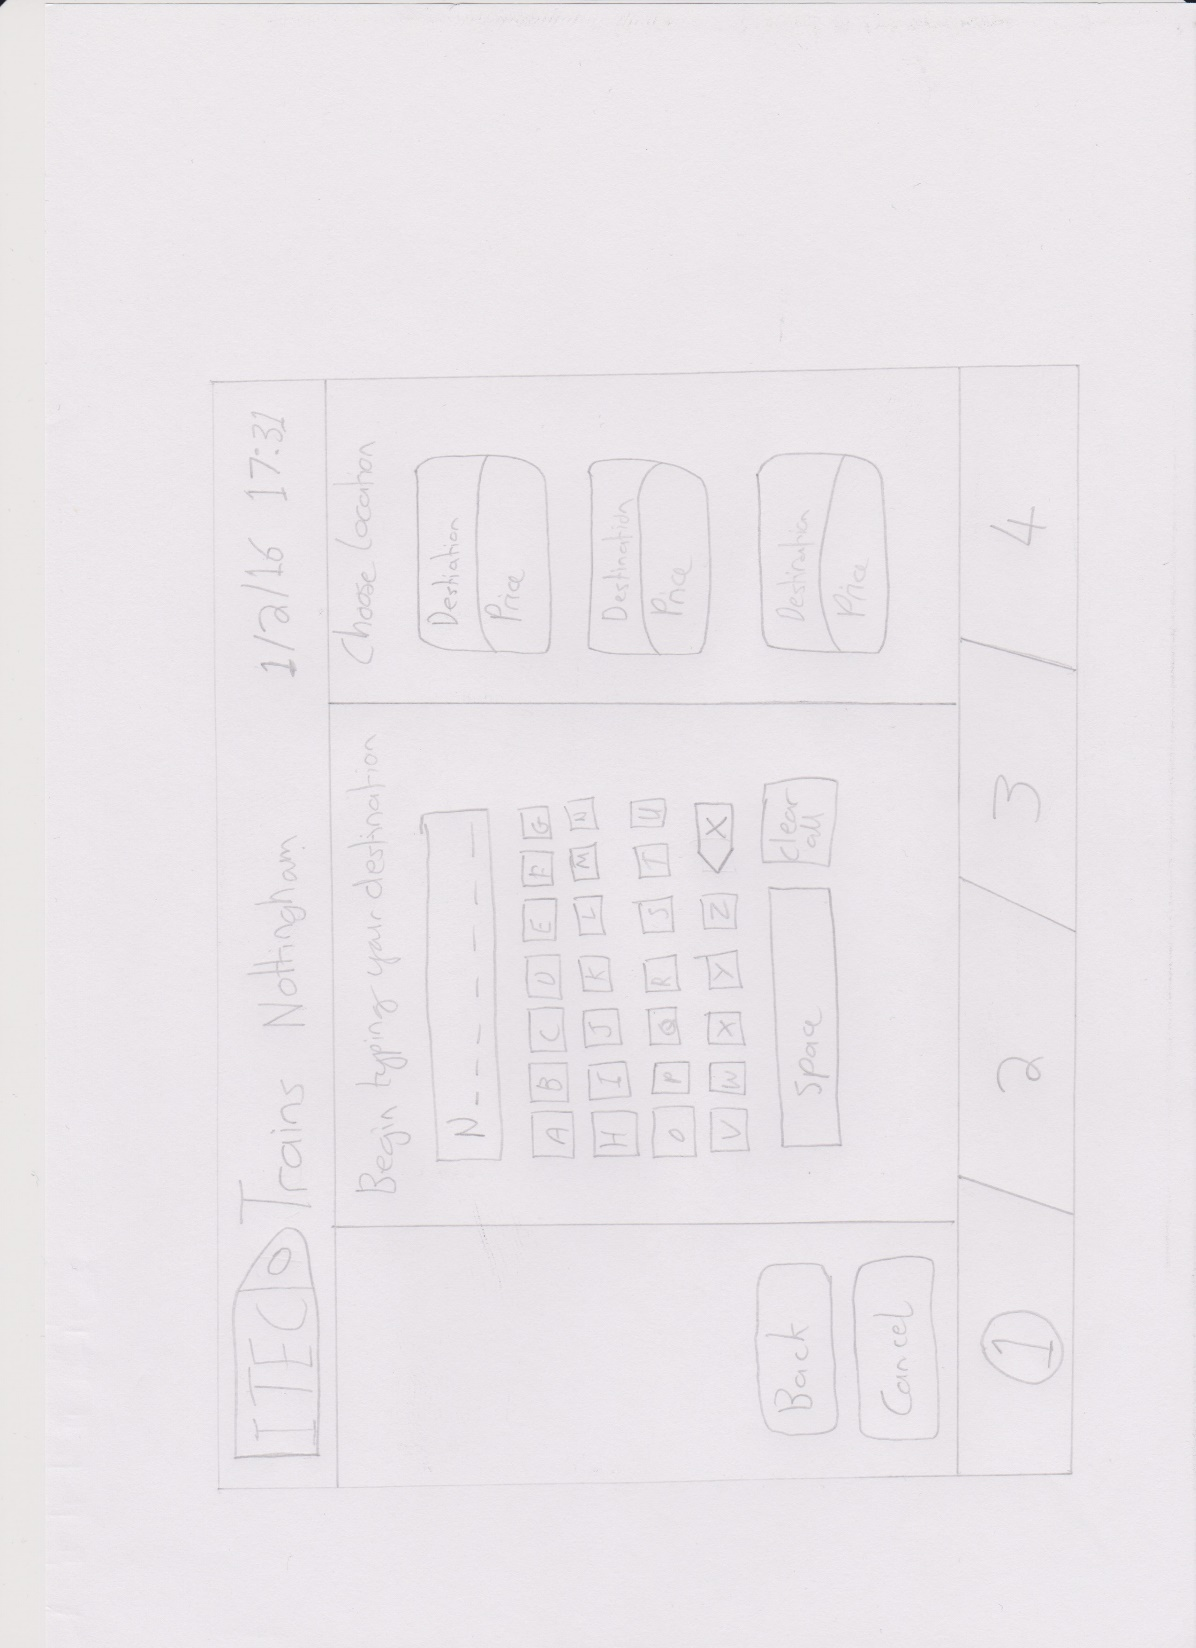 ITEC Trains Nottingham 1/2/16 17:31
Begin typing your destination
N_ _ _ _ _ _ _ _
A B C D E F G
H I J K L M N
O P Q R S T U
V W X Y Z X
Space Clear all
Choose Location
Destiation
Price
Destination
Price
Destination
Price
Back
Cancel
1 / 2 / 3 / 4